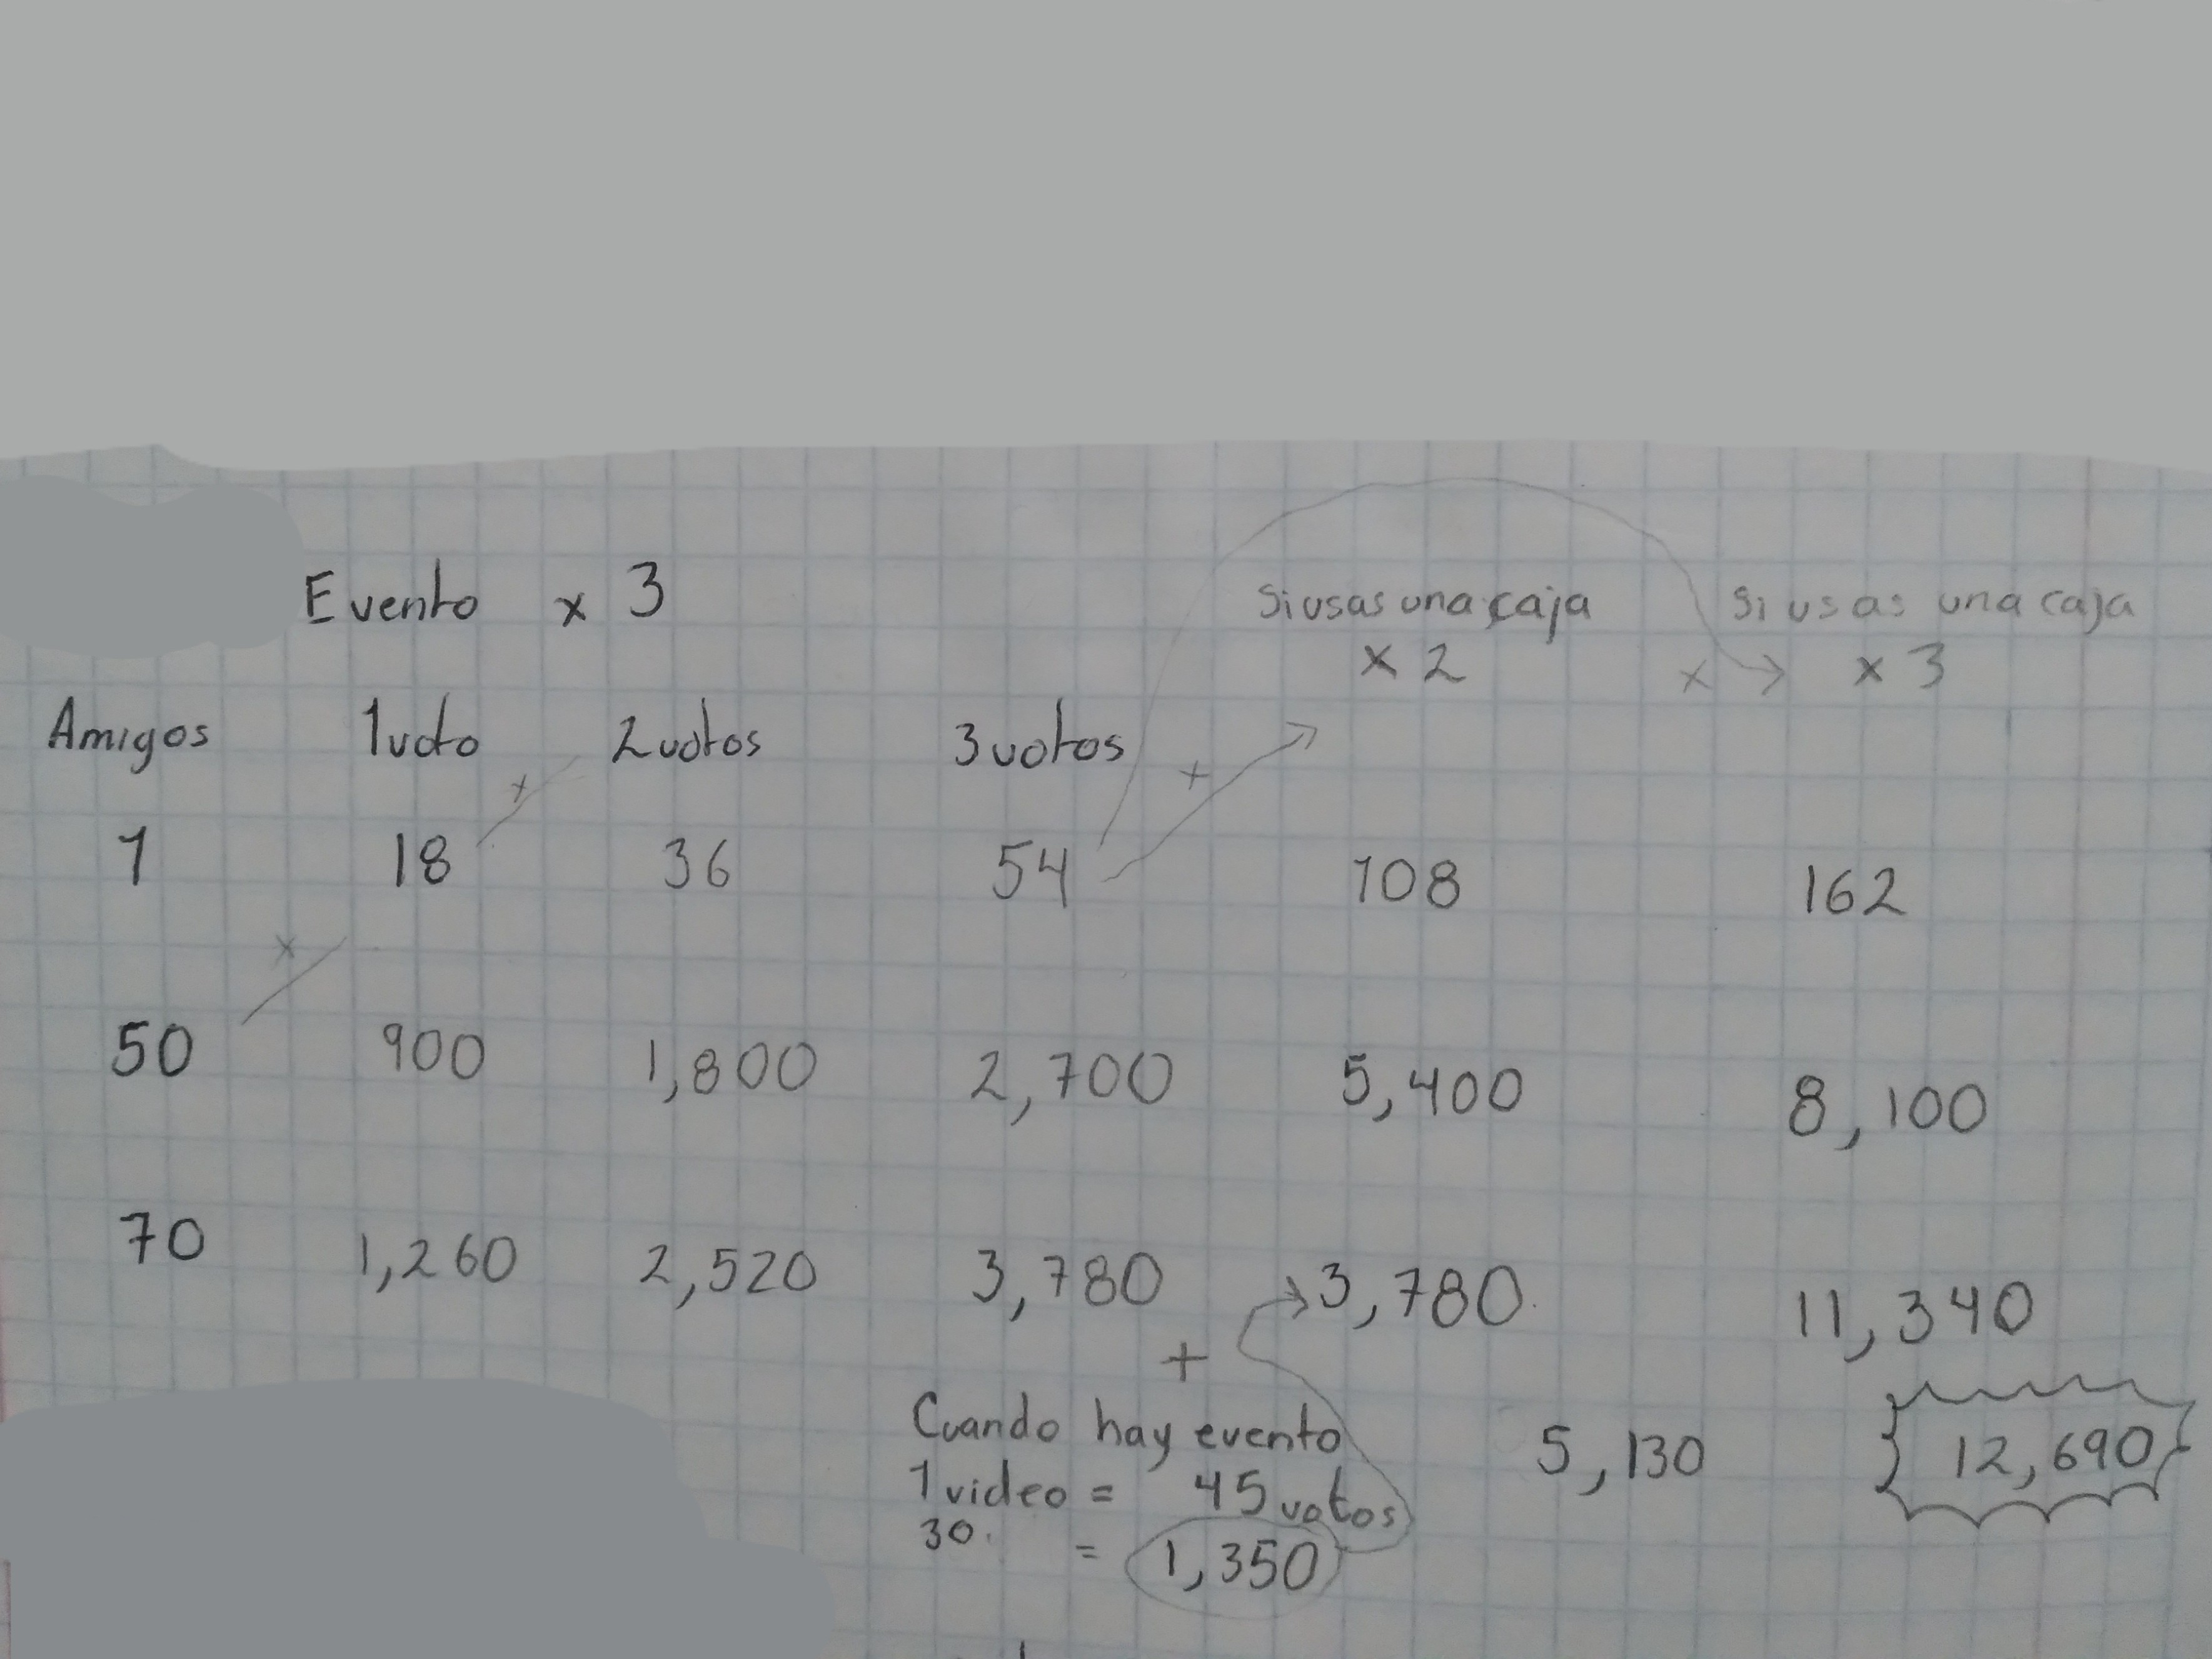 Evento x 3
Si usas una caja Si usas una caja
x 2 x → x 3
Amigos 1 voto 2 votos 3 votos
x +
1 18 36 54 108 162
x
50 900 1,800 2,700 5,400 8,100
70 1,260 2,520 3,780 3,780 11,340
+
Cuando hay evento 5,130 12,690
1 video = 45 votos
30. = 1,350